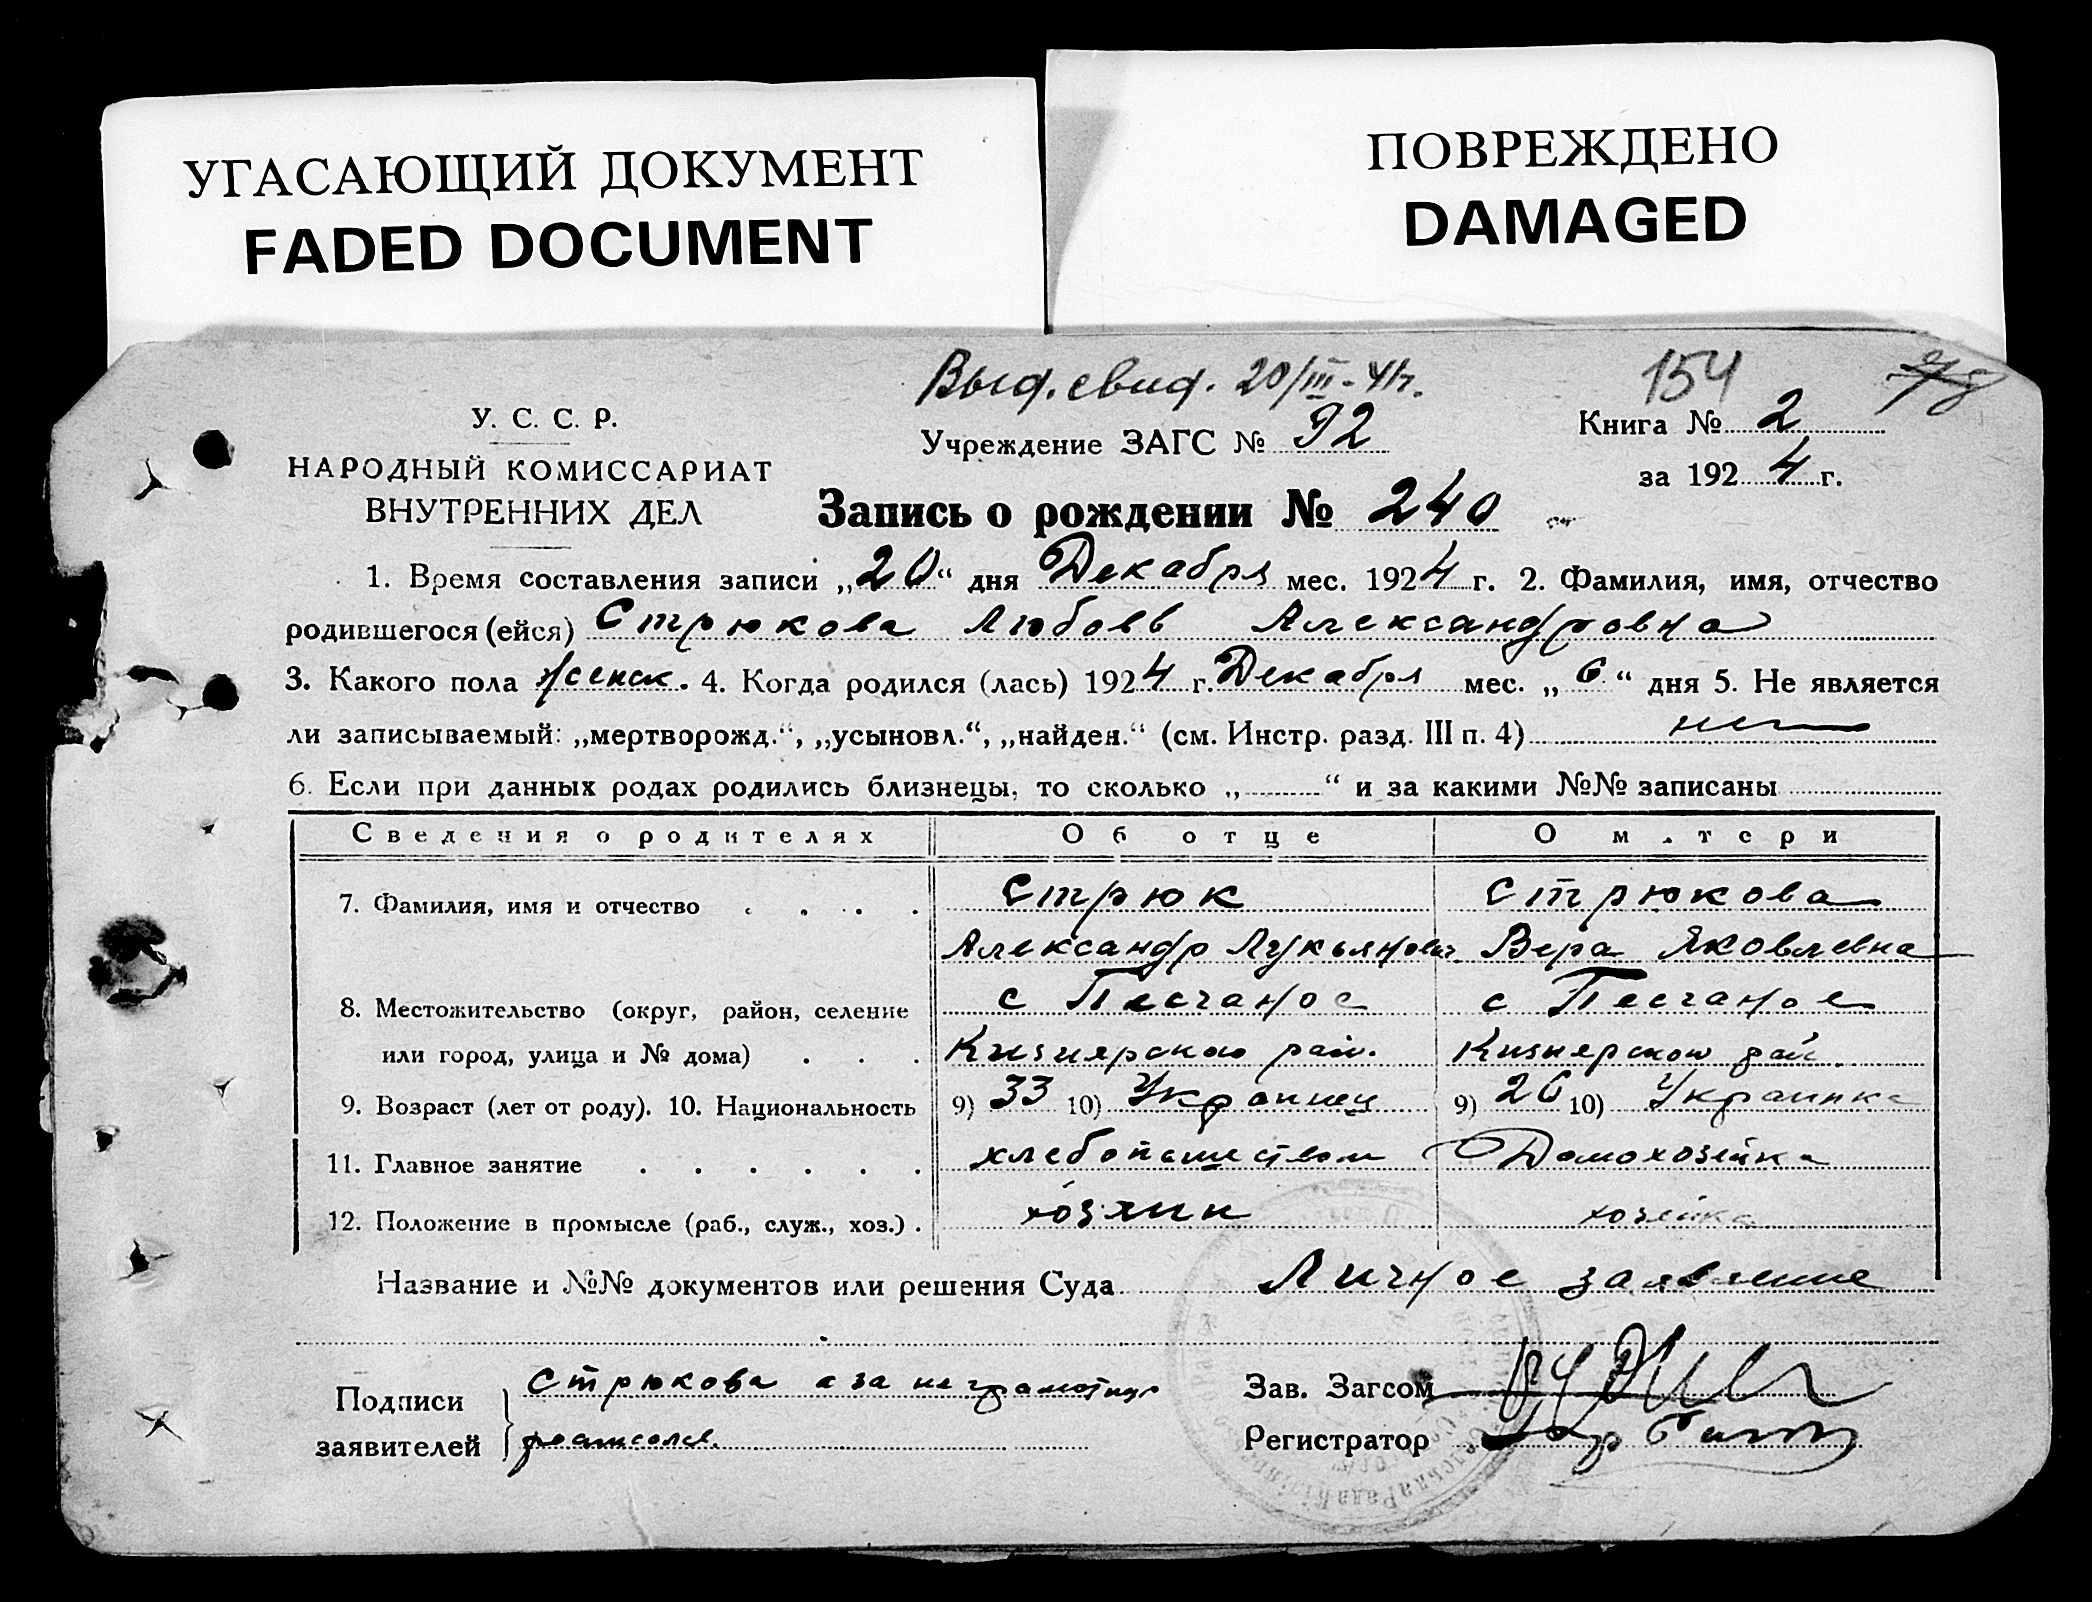 УГАСАЮЩИЙ ДОКУМЕНТ
FADED DOCUMENT
ПОВРЕЖДЕНО
DAMAGED
Выд. свид. 20/III-41г.
154
У. С. С. Р.
НАРОДНЫЙ КОМИССАРИАТ
ВНУТРЕННИХ ДЕЛ
Учреждение ЗАГС №
Книга № 2
за 1924 г.
Запись о рождении № 240
1. Время составления записи „20“ дня Декабря мес. 1924 г. 2. Фамилия, имя, отчество
родившегося (ейся) Стрюкова Любовь Александровна
3. Какого пола женск. 4. Когда родился (лась) 1924 г. Декабря мес. „6“ дня 5. Не является
ли записываемый: „мертворожд.“, „усыновл.“, „найден.“ (см. Инстр. разд. III п. 4) нет
6. Если при данных родах родились близнецы, то сколько „ “ и за какими №№ записаны
Сведения о родителях Об отце О м.тери
7. Фамилия, имя и отчество Стрюк Стрюкова
Александр Лукьянович Вера Яковлевна
8. Местожительство (округ, район, селение с Песчаное с Песчаное
или город, улица и № дома) Кизиярского рай. Кизиярского рай.
9. Возраст (лет от роду). 10. Национальность 9) 33 10) Украинец 9) 26 10) Украинка
11. Главное занятие хлебопашеством Домохозяйка
12. Положение в промысле (раб., служ., хоз.) хозяин хозяйка
Название и №№ документов или решения Суда Личное заявление
Подписи заявителей Стрюкова а за неграмотную
росписался
Зав. Загсом
Регистратор